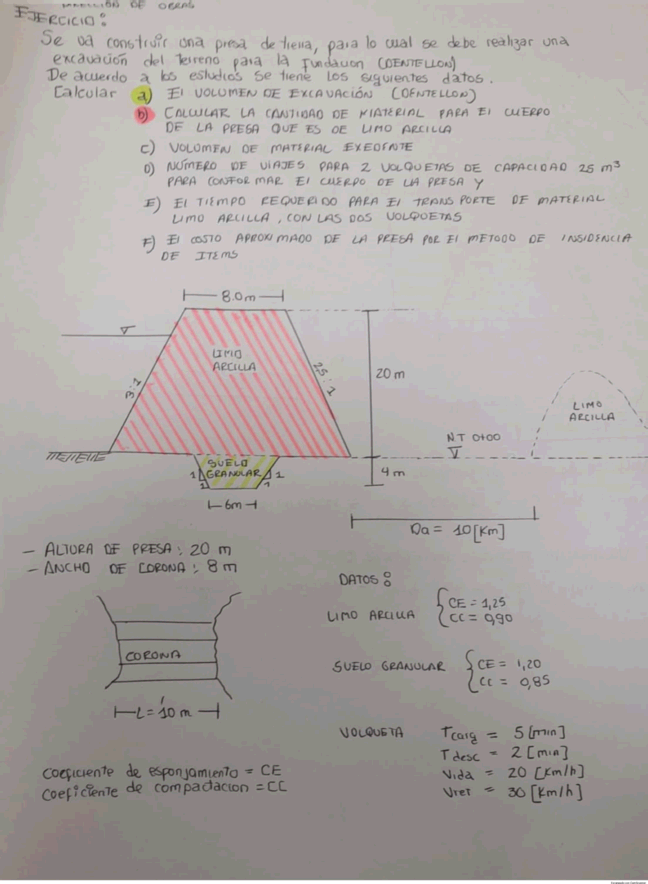 DIRECCIÓN DE OBRAS
EJERCICIO:
Se va construir una presa de tierra, para lo cual se debe realizar una
excavación del terreno para la fundacion (DENTELLON)
De acuerdo a los estudios se tiene los siguientes datos.
Calcular a) EL VOLUMEN DE EXCAVACIÓN (DENTELLON)
b) CALCULAR LA CANTIDAD DE MATERIAL PARA El CUERPO
DE LA PRESA QUE ES DE LIMO ARCILLA
C) VOLUMEN DE MATERIAL EXEDENTE
D) NÚMERO DE VIAJES PARA 2 VOLQUETAS DE CAPACIDAD 25 m³
PARA CONFORMAR El CUERPO DE LA PRESA Y
E) El TIEMPO REQUERIDO PARA El TRANSPORTE DE MATERIAL
LIMO ARCILLA, CON LAS DOS VOLQUETAS
F) El COSTO APROXIMADO DE LA PRESA POR El METODO DE INSIDENCIA
DE ITEMS
8.0m
LIMO
ARCILLA
3:1
2,5:1
20 m
LIMO
ARCILLA
N.T 0+00
SUELO
GRANULAR
1 1
1 1
4 m
6m
Da = 10 [Km]
- ALTURA DE PRESA: 20 m
- ANCHO DE CORONA: 8 m
DATOS:
LIMO ARCILLA { CE = 1,25
CC = 0,90
CORONA
SUELO GRANULAR { CE = 1,20
CC = 0,85
L = 10 m
VOLQUETA Tcarg = 5 [min]
Tdesc = 2 [min]
Vida = 20 [Km/h]
Vret = 30 [Km/h]
Coeficiente de esponjamiento = CE
Coeficiente de compactacion = CC